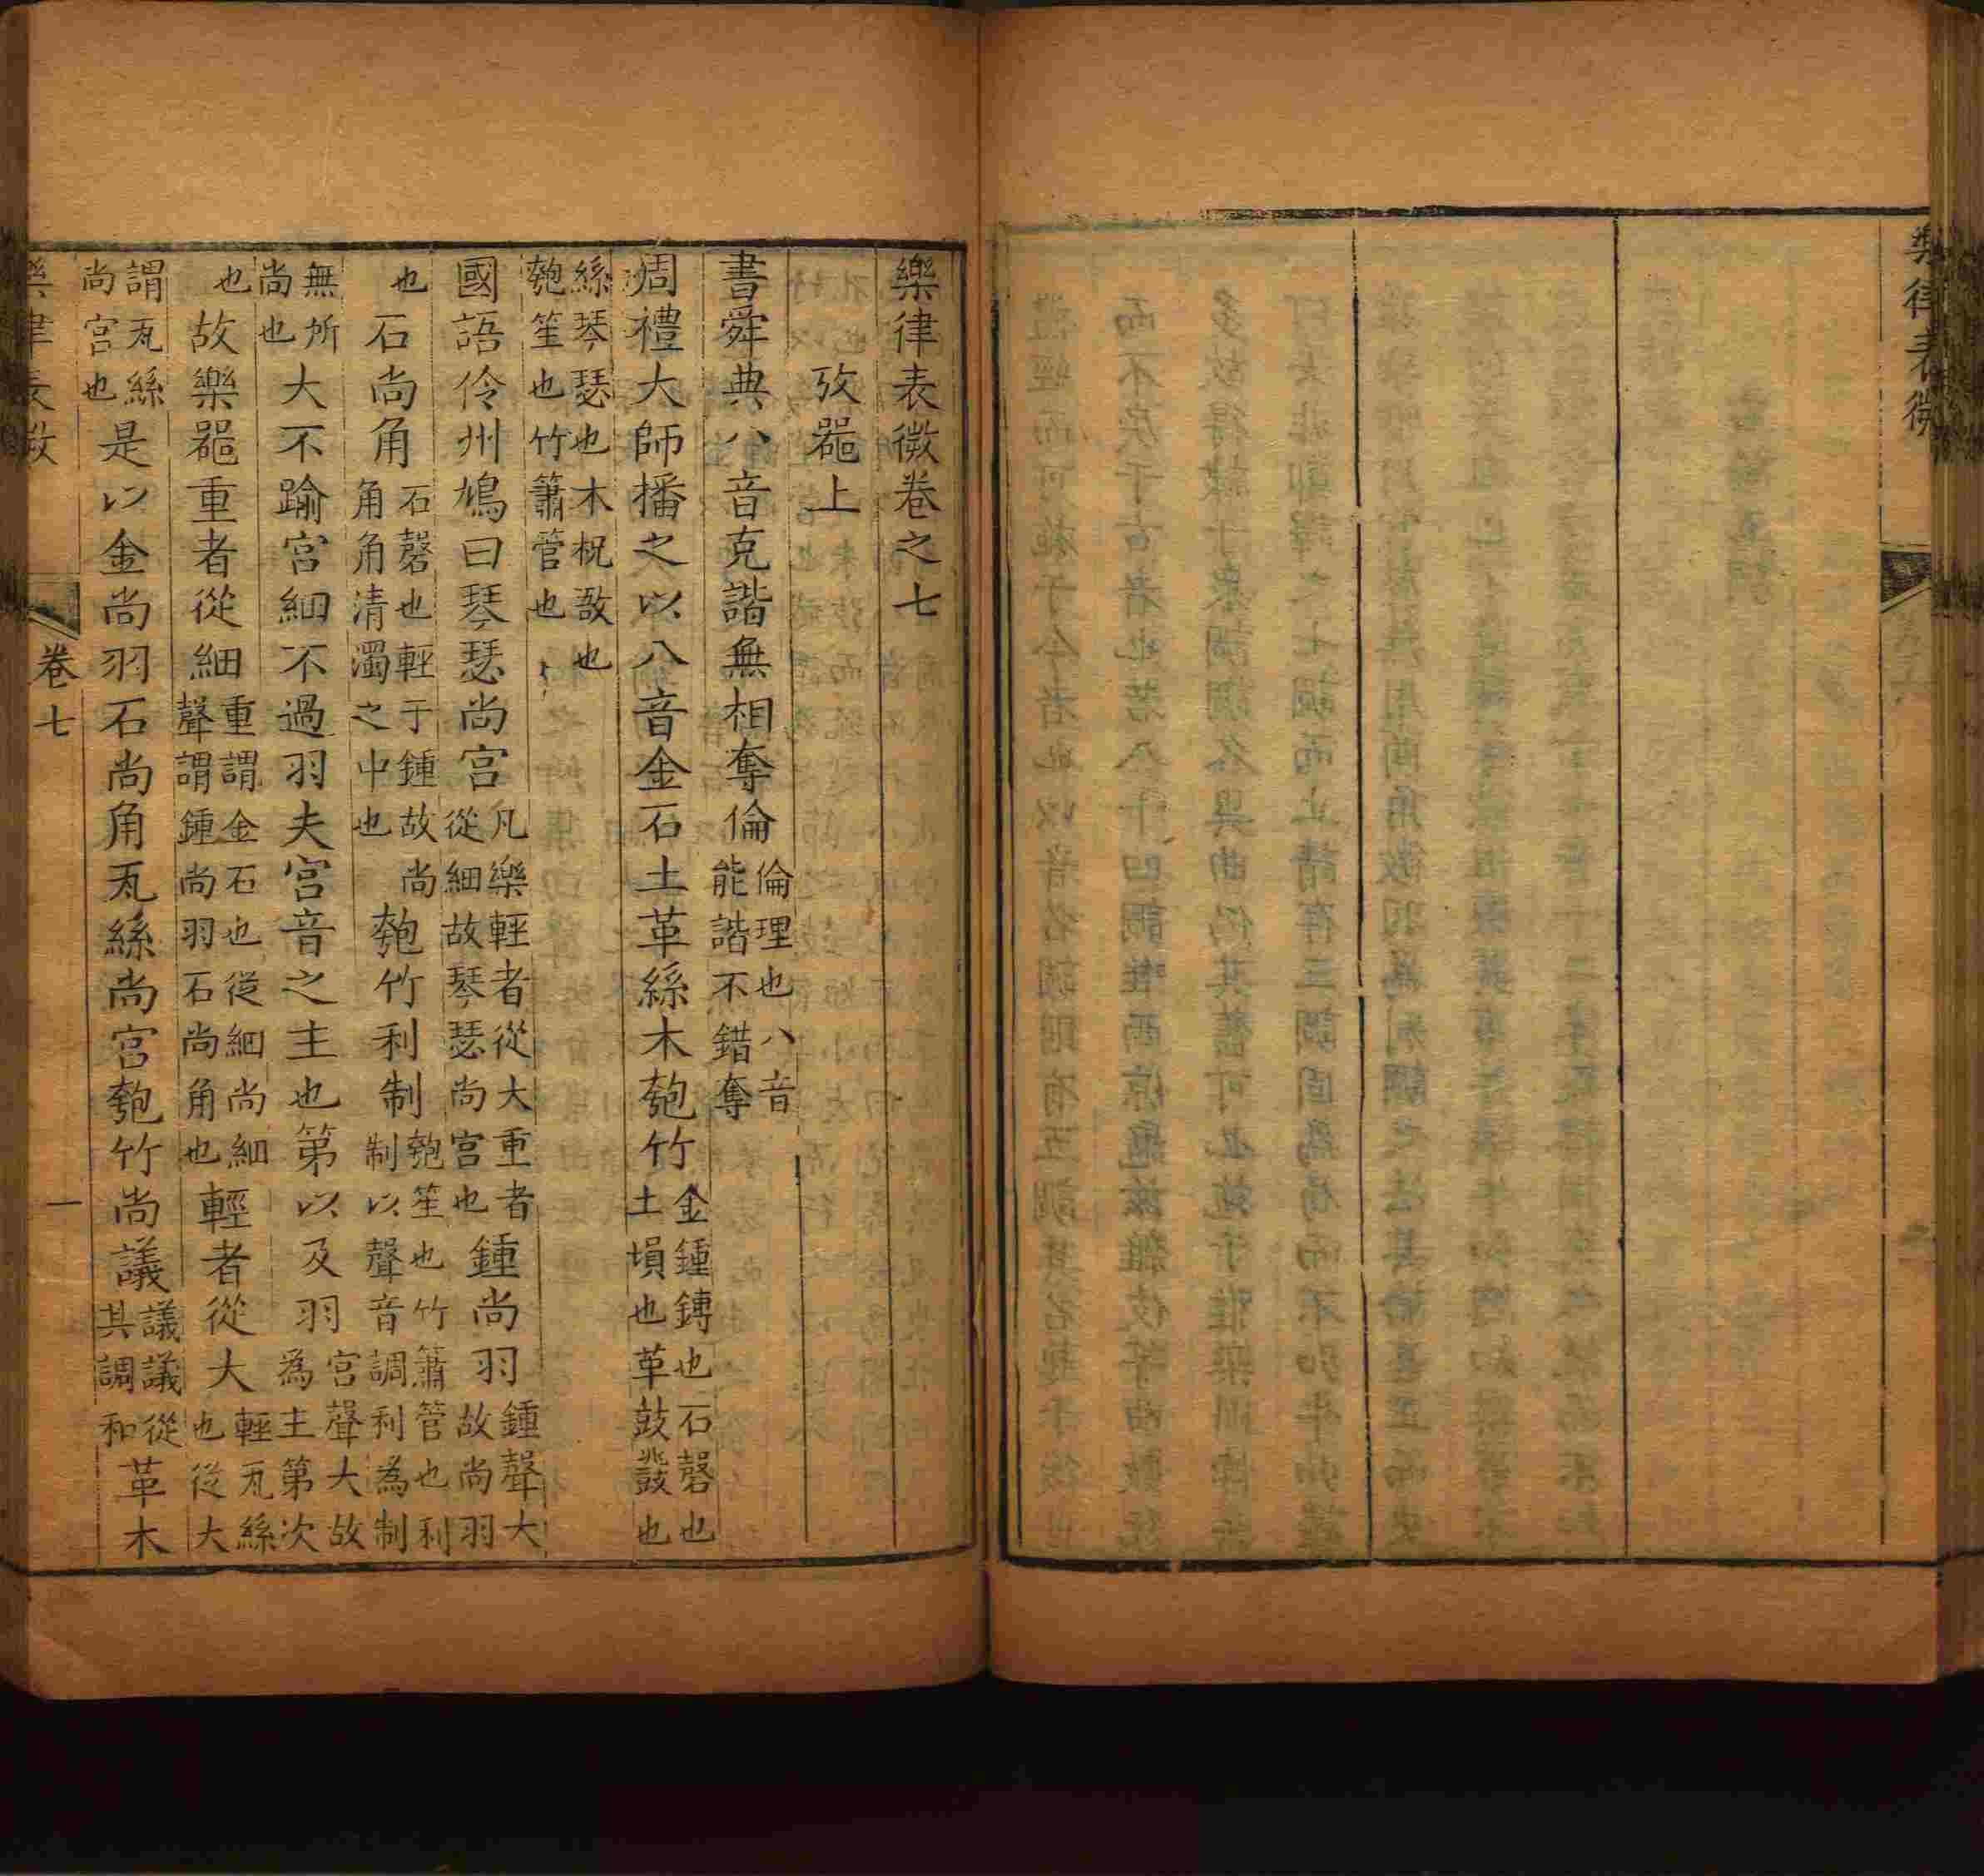 樂律表微
樂律表微卷之七
攷噐上
書舜典八音克諧無相奪倫倫理也八音能諧不錯奪
周禮大師播之以八音金石土革絲木匏竹金鍾鎛也石磬也土塤也革鼓鼗也
絲琴瑟也木柷敔也匏笙也竹簫管也
國語伶州鳩曰琴瑟尚宮凡樂輕者從大重者從細故琴瑟尚宮也鍾尚羽鍾聲大故尚羽
也石尚角石磬也輕于鍾故尚角角清濁之中也匏竹利制匏笙也竹簫管也利制以聲音調利為制
無所尚也大不踰宮細不過羽夫宮音之主也第以及羽宮聲大故為主第次
也故樂噐重者從細重謂金石也從細尚細聲謂鍾尚羽石尚角也輕者從大輕瓦絲也從大
謂瓦絲尚宮也是以金尚羽石尚角瓦絲尚宮匏竹尚議議議從其調和革木
樂律表微 卷七 一